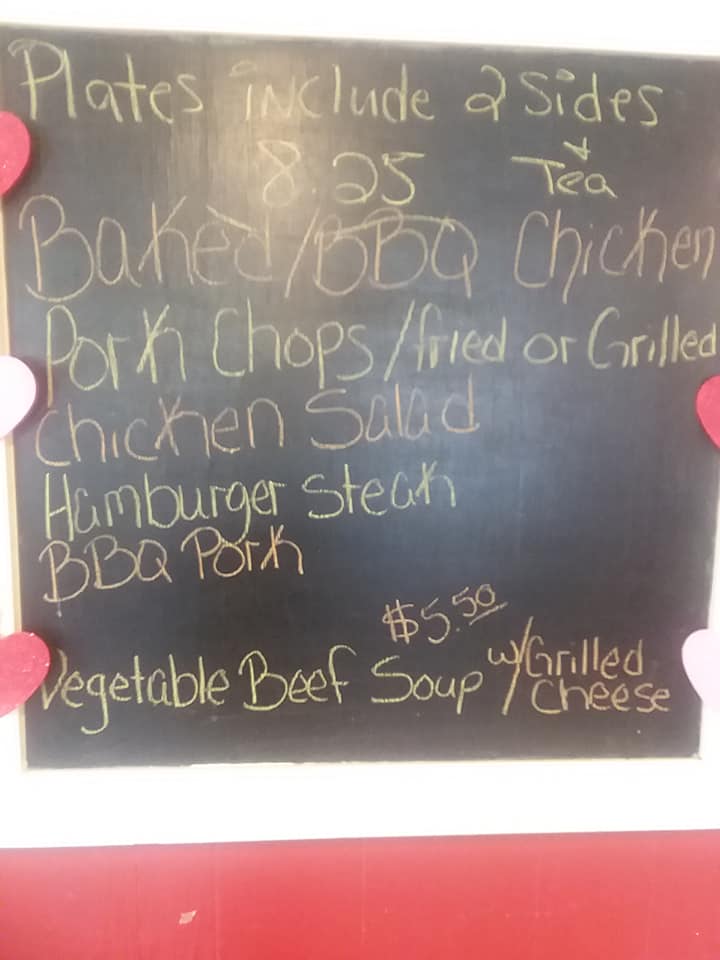 Plates include 2 sides
8.25 + Tea
Baked/BBQ Chicken
Pork Chops/fried or Grilled
Chicken Salad
Hamburger Steak
BBQ Pork
$5.50
Vegetable Beef Soup w/Grilled
Cheese